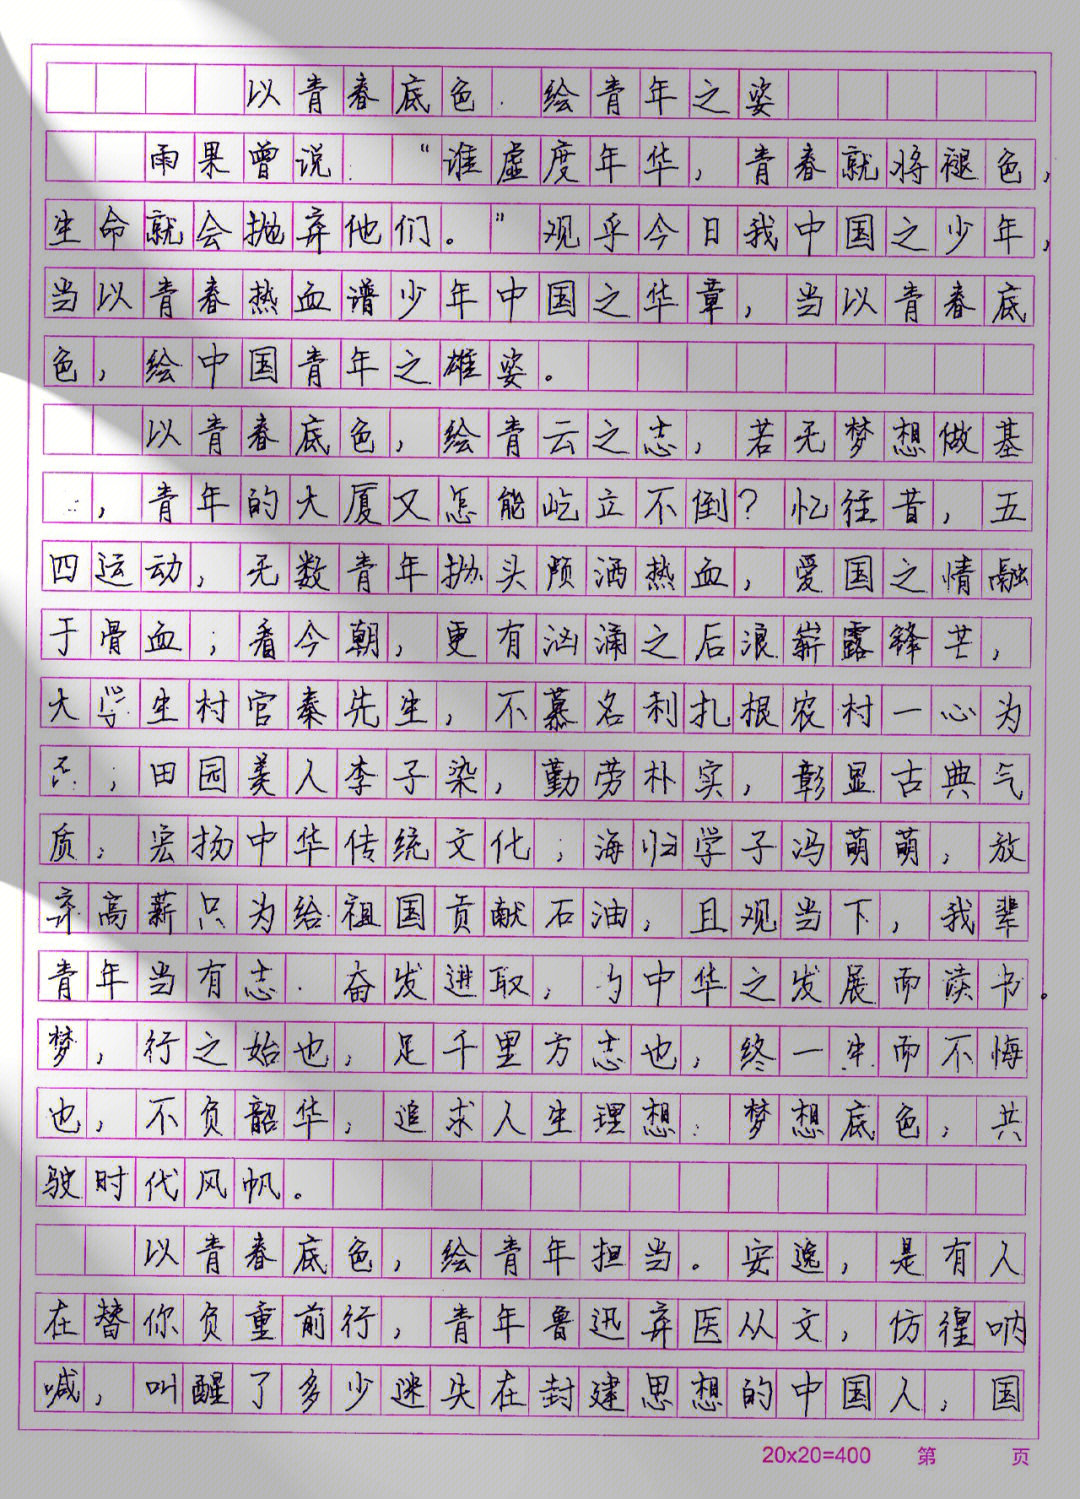 以青春底色.绘青年之姿
雨果曾说.“谁虚度年华，青春就将褪色，
生命就会抛弃他们。”观乎今日我中国之少年，
当以青春热血谱少年中国之华章，当以青春底
色，绘中国青年之雄姿。
以青春底色，绘青云之志，若无梦想做基
，青年的大厦又怎能屹立不倒？忆往昔，五
四运动，无数青年抛头颅洒热血，爱国之情融
于骨血；看今朝，更有汹涌之后浪崭露锋芒，
大学生村官秦先生，不慕名利扎根农村一心为
；田园美人李子染，勤劳朴实，彰显古典气
质；宏扬中华传统文化；海归学子冯萌萌，放
弃高薪只为给祖国贡献石油，且观当下，我辈
青年当有志.奋发进取，中华之发展而读书。
梦，行之始也，足千里方志也，终一生而不悔
也，不负韶华，追求人生理想.梦想底色，共
驶时代风帆。
以青春底色，绘青年担当。安逸，是有人
在替你负重前行，青年鲁迅弃医从文，仿徨呐
喊，叫醒了多少迷失在封建思想的中国人，国
20x20=400 第 页